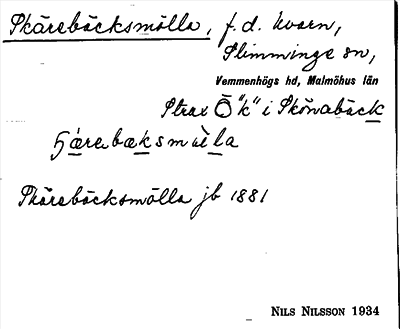 Skårebäcksmölla, f.d. kvarn,
Slimminge sn,
Vemmenhögs hd, Malmöhus län
Strax Ö "k" i Skönabäck
Skårebäcksmölla jb 1881
NILS NILSSON 1934